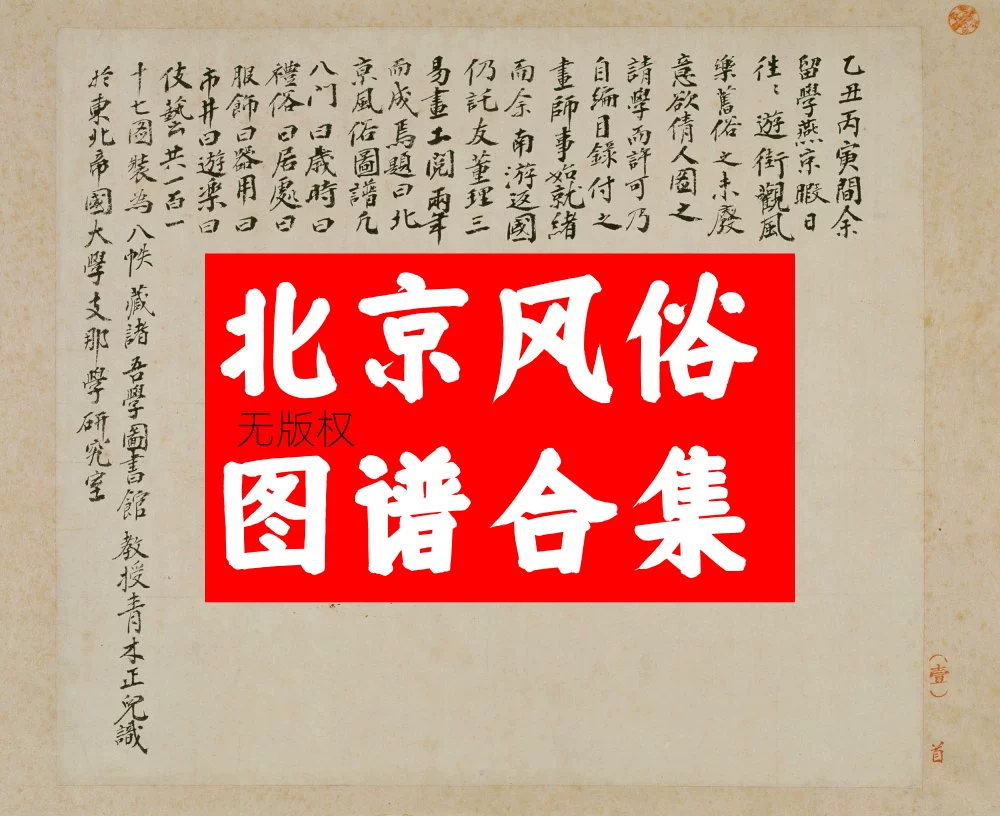 乙丑丙寅間余
留學燕京暇日
徃〻遊街觀風
樂舊俗之未廢
意欲倩人圖之
請學而許可乃
自編目錄付之
畫師事如就緒
而余南游返國
仍託友董理三
易畫工閱兩年
而成焉題曰北
京風俗圖譜凡
八門曰歲時曰
禮俗曰居處曰
服飾曰器用曰
市井曰遊樂曰
伎藝共一百一
十七圖裝為八帙藏諸吾學圖書館教授青木正兒識
於東北帝國大學支那學研究室
北京风俗
无版权
图谱合集
（壹）
首